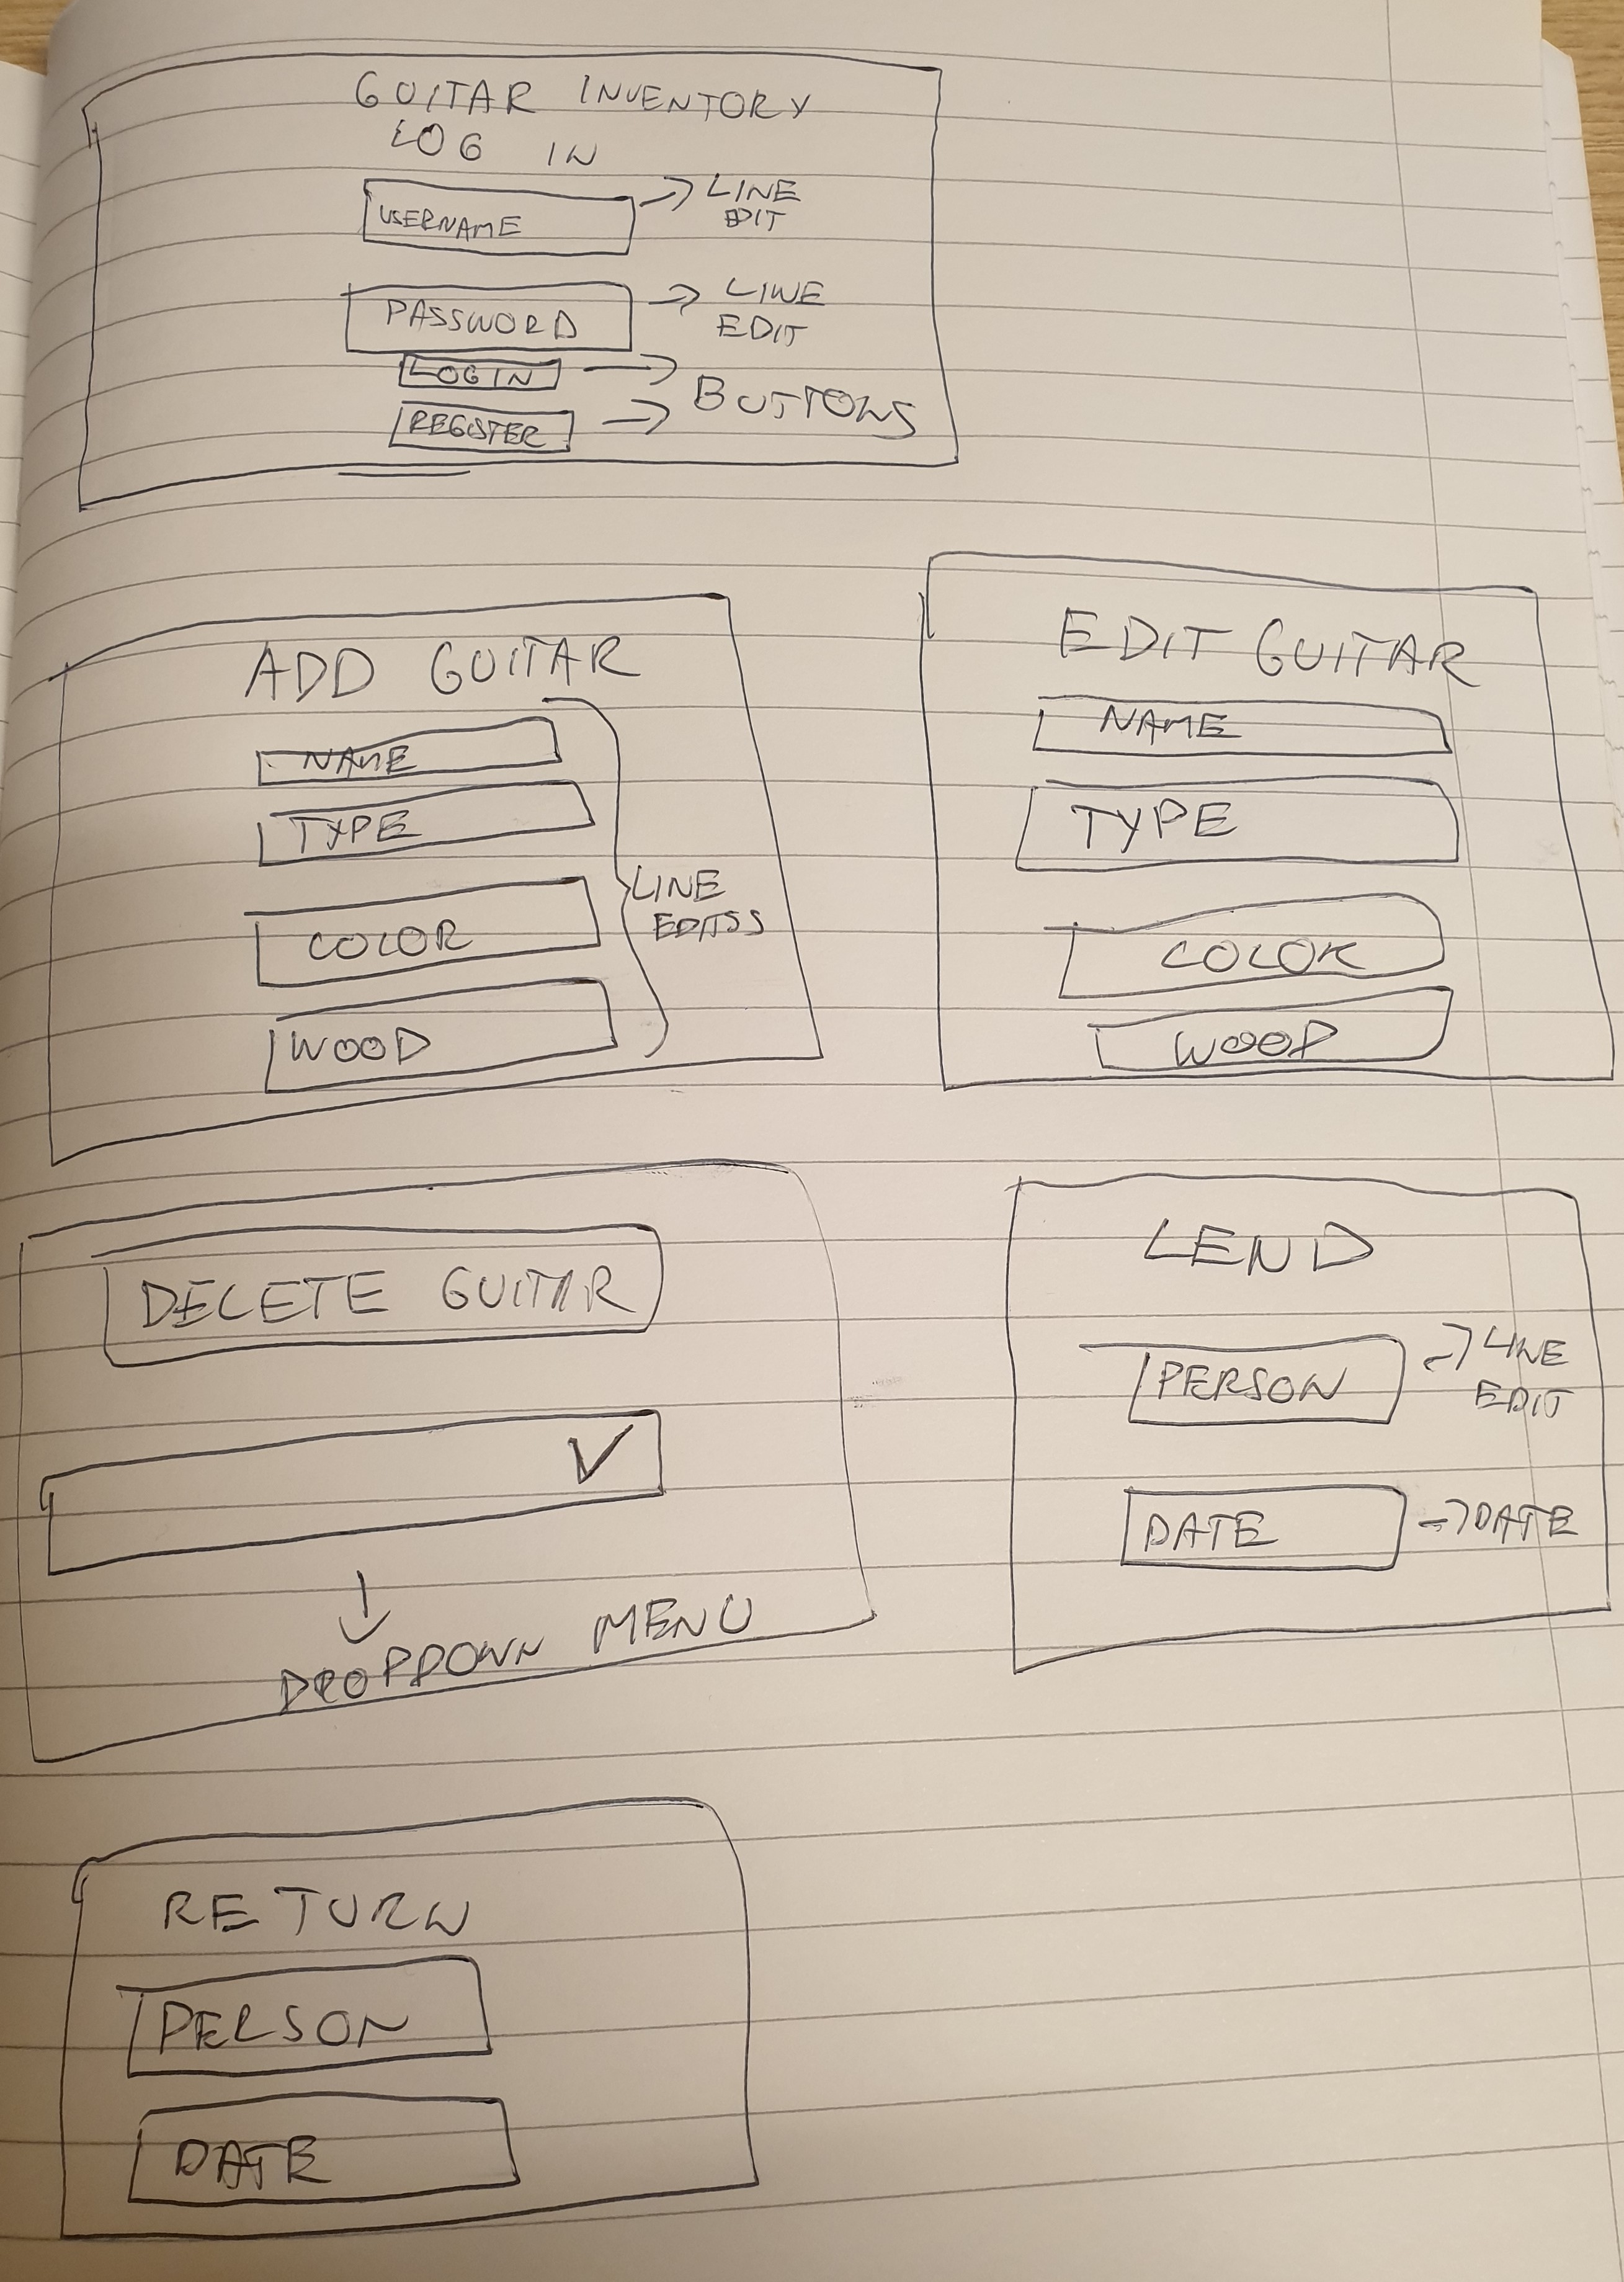 GUITAR INVENTORY
LOG IN
USERNAME → LINE
EDIT
PASSWORD → LINE
EDIT
LOGIN →
REGISTER → BUTTONS
ADD GUITAR
NAME
TYPE
COLOR
WOOD
LINE
EDITSS
EDIT GUITAR
NAME
TYPE
COLOR
WOOD
DELETE GUITAR
DROPDOWN MENU
LEND
PERSON → LINE
EDIT
DATE → DATE
RETURN
PERSON
DATE